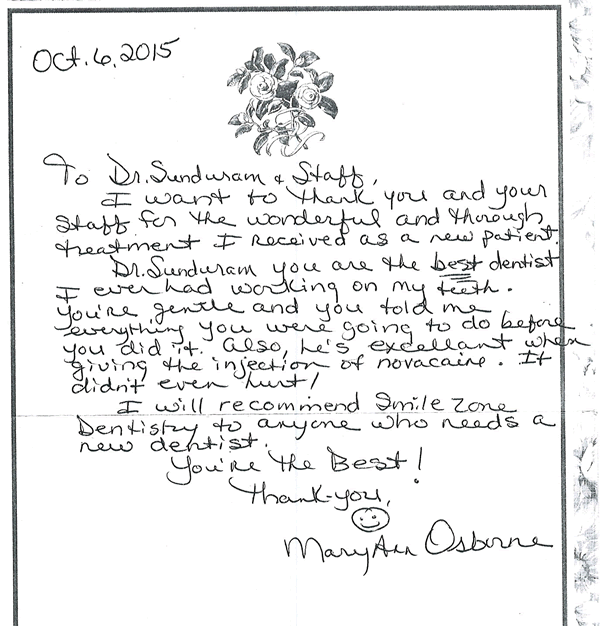 Oct. 6, 2015
To Dr. Sunduram & Staff,
I want to thank you and your
staff for the wonderful and thorough
treatment I received as a new patient.
Dr. Sunduram you are the best dentist
I ever had working on my teeth.
You're gentle and you told me
everything you were going to do before
you did it. Also, he's excellant when
giving the injection of novacaine. It
didn't even hurt!
I will recommend Smile Zone
Dentistry to anyone who needs a
new dentist.
You're the Best!
Thank-you,
MaryAnn Osborne